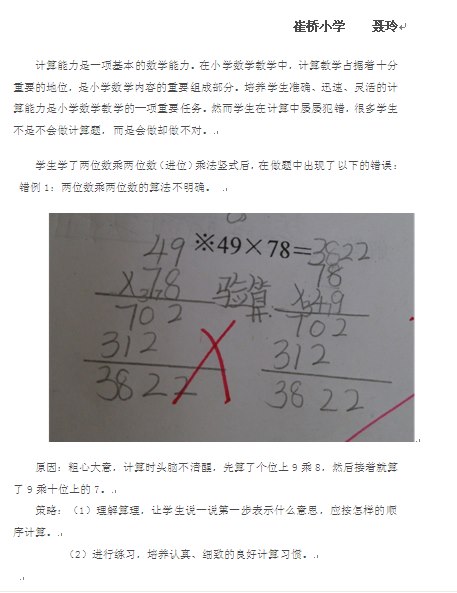 崔桥小学 聂玲
计算能力是一项基本的数学能力。在小学数学教学中,计算教学占据着十分
重要的地位,是小学数学内容的重要组成部分。培养学生准确、迅速、灵活的计
算能力是小学数学教学的一项重要任务。然而学生在计算中屡屡犯错,很多学生
不是不会做计算题,而是会做却做不对。
学生学了两位数乘两位数(进位)乘法竖式后,在做题中出现了以下的错误:
错例1:两位数乘两位数的算法不明确。
※49×78=3822
49
×78
702
312
3822
验算
78
×49
702
312
3822
原因:粗心大意,计算时头脑不清醒,先算了个位上9乘8,然后接着就算
了9乘十位上的7。
策略:(1)理解算理,让学生说一说第一步表示什么意思,应按怎样的顺
序计算。
(2)进行练习,培养认真、细致的良好计算习惯。